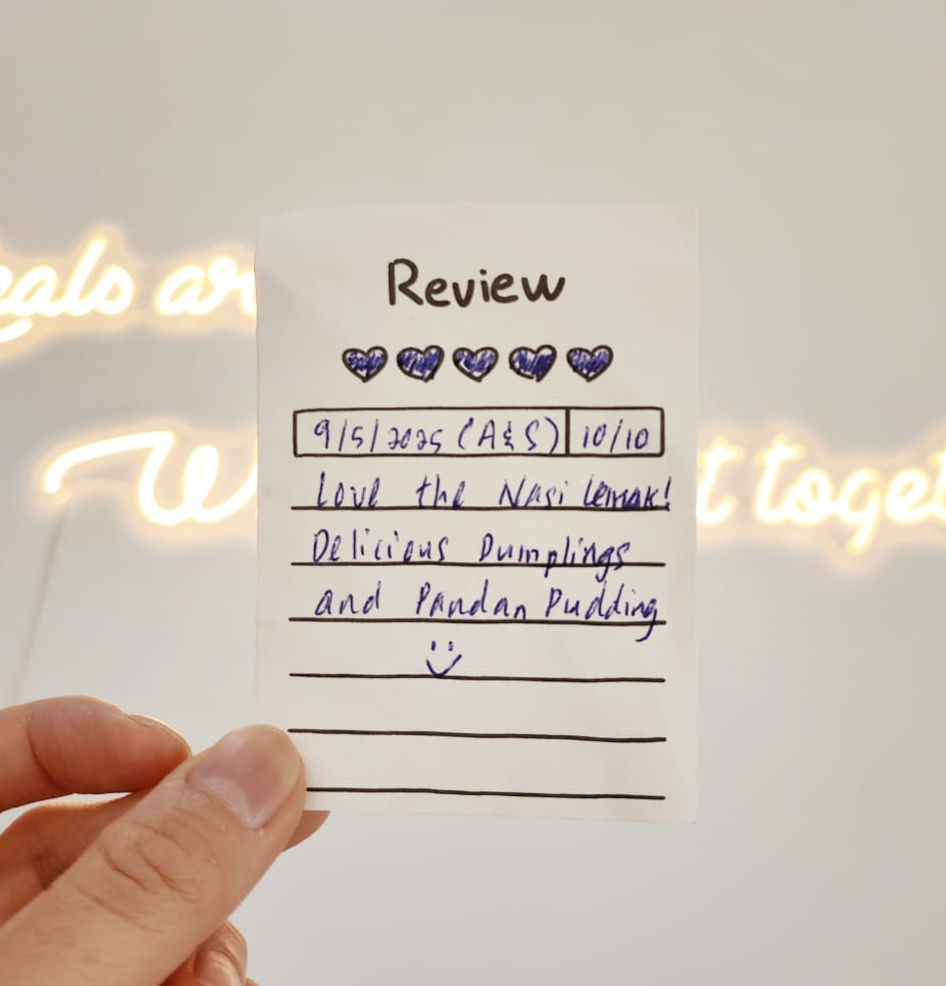 eals ar
W t toget
Review
9/5/2025 (A&S) 10/10
Love the Nasi Lemak!
Delicious Dumplings
and Pandan Pudding